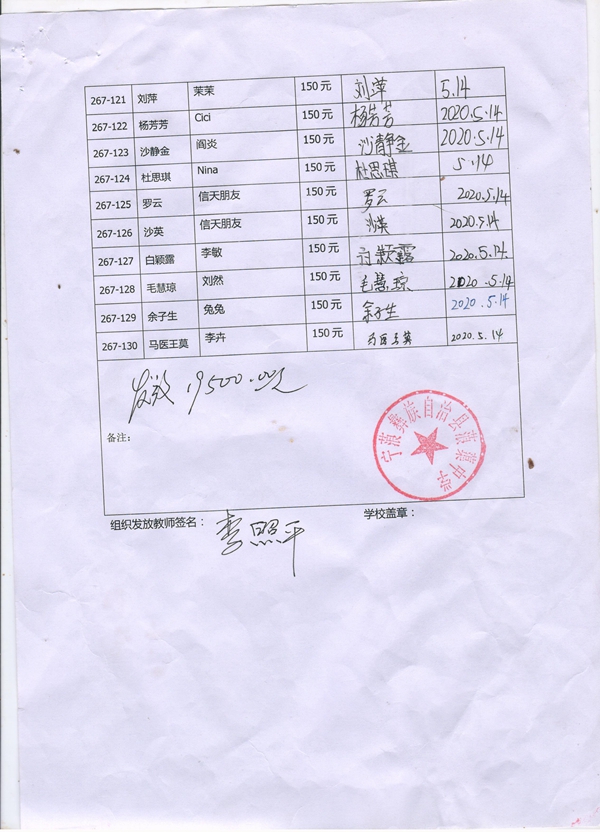 267-121 刘萍 茉茉 150元 刘萍 5.14
267-122 杨芳芳 Cici 150元 杨芳芳 2020.5.14
267-123 沙静金 阎炎 150元 沙静金 2020.5.14
267-124 杜思琪 Nina 150元 杜思琪 5.14
267-125 罗云 信天朋友 150元 罗云 2020.5.14
267-126 沙英 信天朋友 150元 沙英 2020.5.14
267-127 白颖露 李敏 150元 白颖露 2020.5.14.
267-128 毛慧琼 刘然 150元 毛慧琼 2020.5.14
267-129 余子生 兔兔 150元 余子生 2020.5.14
267-130 马医王莫 李卉 150元 2020.5.14
19500.00元
备注：
宁蒗彝族自治县蒗蕖中学
组织发放教师签名： 李照平 学校盖章：